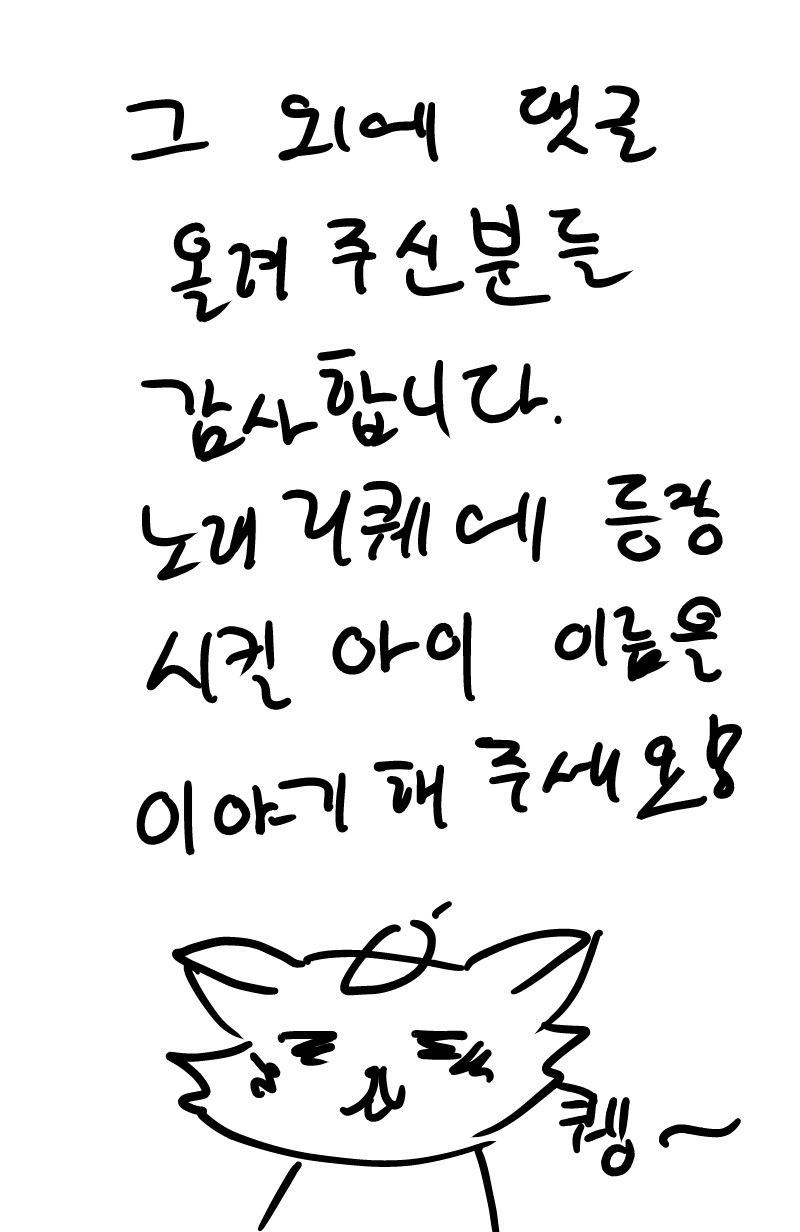 그 외에 댓글
올려 주신분들
감사합니다.
노래 리퀘에 등장
시킬 아이 이름을
이야기 해 주세요!
퀭~